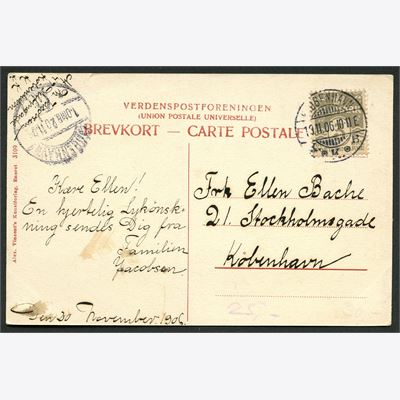 VERDENSPOSTFORENINGEN
(UNION POSTALE UNIVERSELLE)
BREVKORT — CARTE POSTALE
Alex. Vincents Kunstforlag. Eneret 3100
KJØBENHAVN
19.11.06.10-11 E
Kære Ellen!
En hjertelig Lykönsk-
ning sendes Dig fra
Familien
Jacobsen
Den 20 November 1906.
Frk Ellen Bache
21. Stockholmsgade
København
25,-